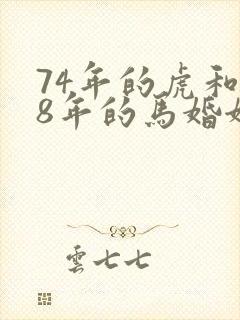 74年的虎和
8年的馬婚
雲七七